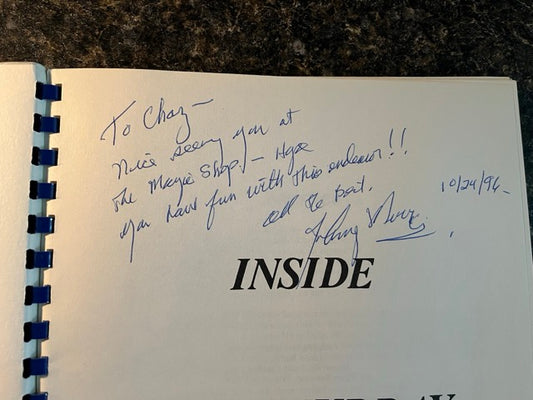 To Chaz—
Nice seeing you at
the Magic Shop. — Hope
you have fun with this endeavor!!
All the Best,
10/24/96
INSIDE